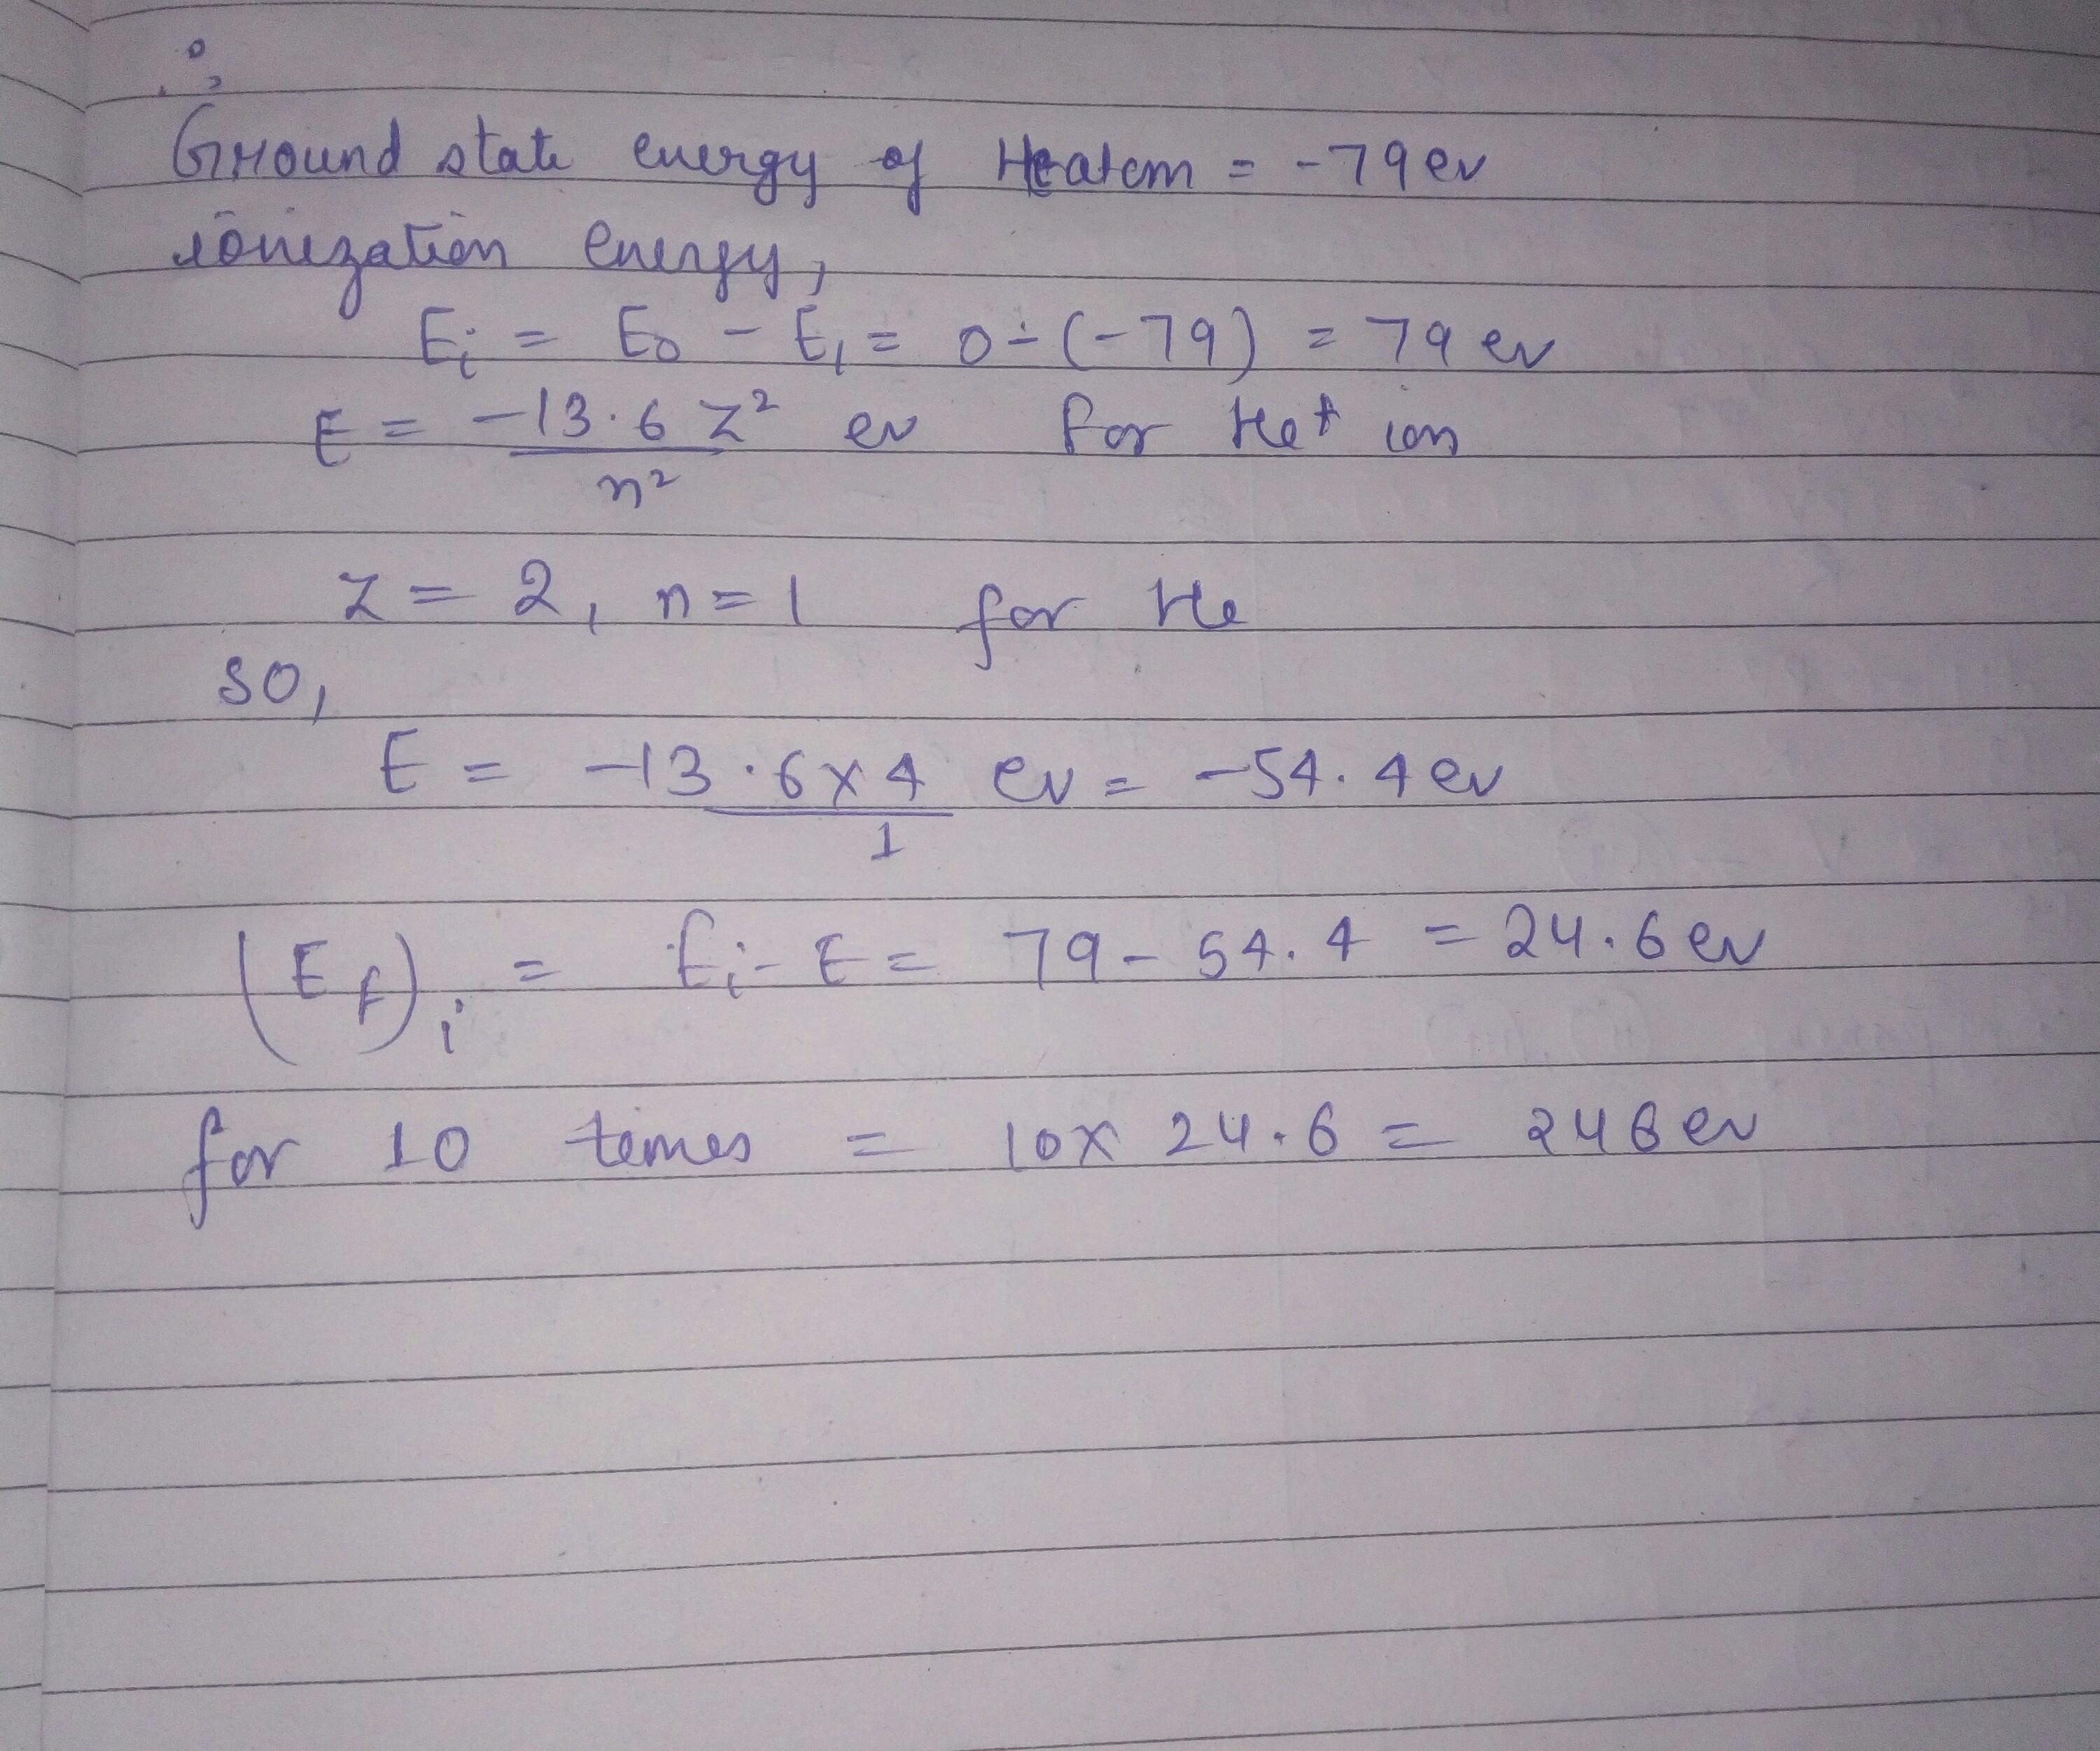 Ground state energy of He atom = -79 ev
ionization energy,
Ei = E0 - E1 = 0 - (-79) = 79 ev
E = -13.6 Z² / n² ev for He+ ion
Z = 2, n = 1 for He
so,
E = -13.6 x 4 / 1 ev = -54.4 ev
(Ef)i = Ei - E = 79 - 54.4 = 24.6 ev
for 10 times = 10 x 24.6 = 246 ev